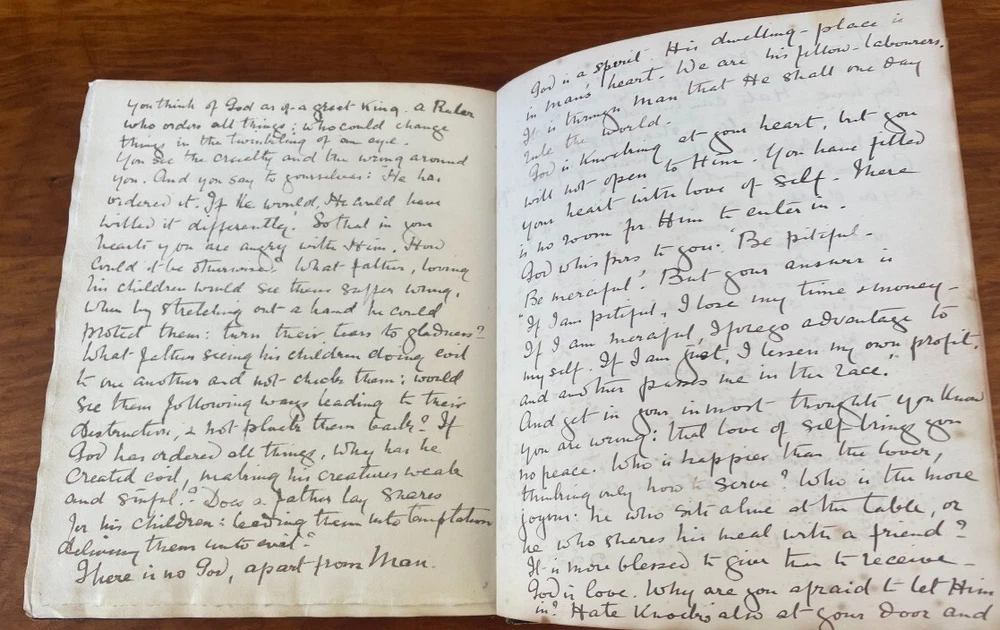 you think of God as of a great King. a Ruler
who orders all things; who could change
things in the twinkling of an eye.
You see the cruelty and the wrong around
you. And you say to yourselves: 'He has
ordered it. If He would, He could have
willed it differently.' So that in your
hearts you are angry with Him. How
could it be otherwise? What father, loving
his children would see them suffer wrong,
when by stretching out a hand he could
protect them: turn their tears to gladness?
What father seeing his children doing evil
to one another and not check them: would
see them following ways leading to their
destruction, & not pluck them back? If
God has ordered all things, why has he
created evil, making his creatures weak
and sinful? Does a father lay snares
for his children: leading them into temptation
delivering them unto evil?
There is no God, apart from Man.
God is a spirit. His dwelling-place is
in man's heart. We are his fellow-labourers.
It is through man that He shall one day
rule the world.
God is knocking at your heart, but you
will not open to Him. You have filled
your heart with love of self. There
is no room for Him to enter in.
God whispers to you: 'Be pitiful.
Be merciful'. But your answer is
"If I am pitiful, I lose my time & money-
If I am merciful, I forego advantage to
my self. If I am just, I lessen my own profit,
and another passes me in the race."
And yet in your inmost thoughts you know
you are wrong: that love of self brings you
no peace. Who is happier than the lover,
thinking only how to serve? Who is the more
joyous: he who sits alone at the table, or
he who shares his meal with a friend?
It is more blessed to give than to receive-
God is love. Why are you afraid to let Him
in? Hate knocks also at your door and